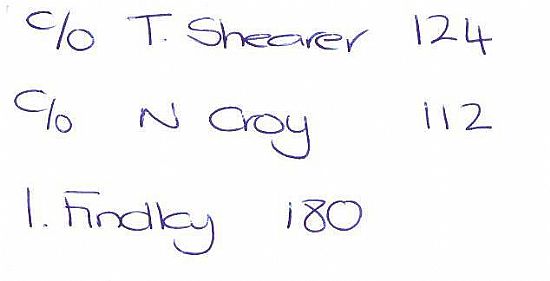 c/o T. Shearer 124
c/o N Croy 112
I. Findlay 180